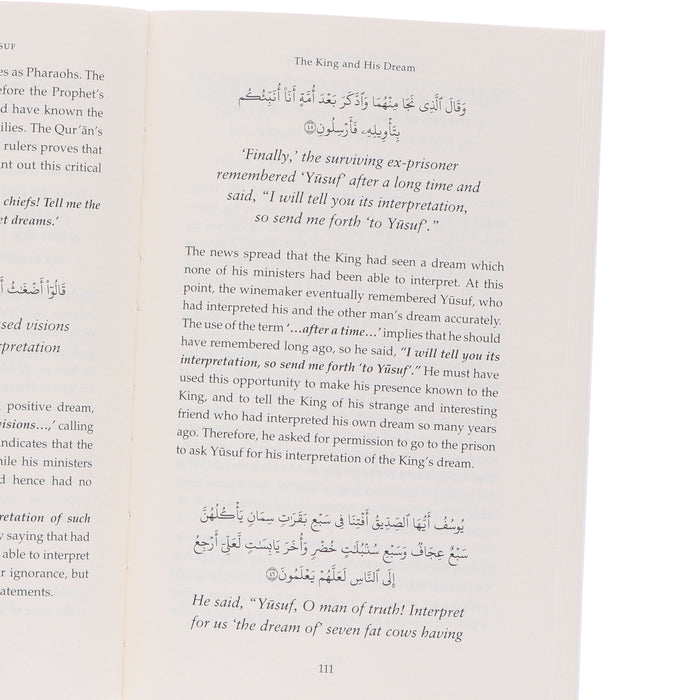 SUF
es as Pharaohs. The
efore the Prophet's
d have known the
ilies. The Qur'ān's
rulers proves that
nt out this critical
chiefs! Tell me the
et dreams.'
قَالُوٓا۟ أَضْغَـٰثُ
sed visions
rpretation
positive dream,
visions…,' calling
ndicates that the
hile his ministers
d hence had no
retation of such
y saying that had
able to interpret
r ignorance, but
atements.
The King and His Dream
وَقَالَ ٱلَّذِى نَجَا مِنْهُمَا وَٱدَّكَرَ بَعْدَ أُمَّةٍ أَنَا۠ أُنَبِّئُكُم
بِتَأْوِيلِهِۦ فَأَرْسِلُونِ ﴿٤٥﴾
'Finally,' the surviving ex-prisoner
remembered 'Yūsuf' after a long time and
said, "I will tell you its interpretation,
so send me forth 'to Yūsuf'."
The news spread that the King had seen a dream which
none of his ministers had been able to interpret. At this
point, the winemaker eventually remembered Yūsuf, who
had interpreted his and the other man's dream accurately.
The use of the term '…after a time…' implies that he should
have remembered long ago, so he said, "I will tell you its
interpretation, so send me forth 'to Yūsuf'." He must have
used this opportunity to make his presence known to the
King, and to tell the King of his strange and interesting
friend who had interpreted his own dream so many years
ago. Therefore, he asked for permission to go to the prison
to ask Yūsuf for his interpretation of the King's dream.
يُوسُفُ أَيُّهَا ٱلصِّدِّيقُ أَفْتِنَا فِى سَبْعِ بَقَرَٰتٍ سِمَانٍ يَأْكُلُهُنَّ
سَبْعٌ عِجَافٌ وَسَبْعِ سُنۢبُلَـٰتٍ خُضْرٍ وَأُخَرَ يَابِسَـٰتٍ لَّعَلِّىٓ أَرْجِعُ
إِلَى ٱلنَّاسِ لَعَلَّهُمْ يَعْلَمُونَ ﴿٤٦﴾
He said, "Yūsuf, O man of truth! Interpret
for us 'the dream of' seven fat cows having
111